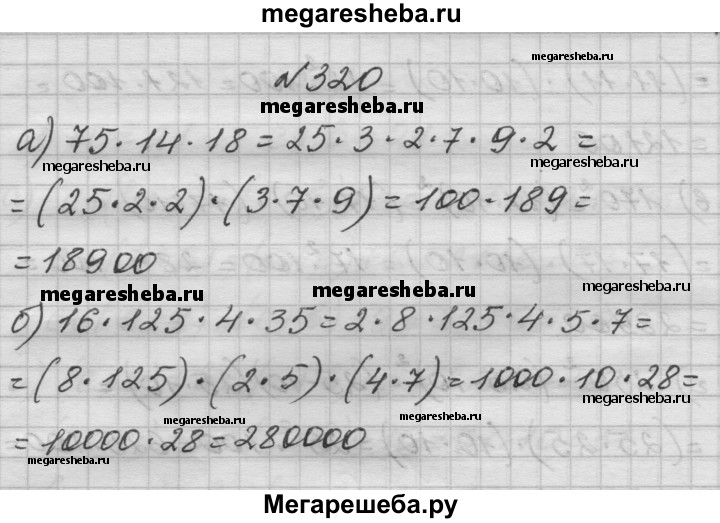 megaresheba.ru
№320
megaresheba.ru
megaresheba.ru
а) 75·14·18=25·3·2·7·9·2=
megaresheba.ru
megaresheba.ru
=(25·2·2)·(3·7·9)=100·189=
=18900
megaresheba.ru
megaresheba.ru
megaresheba.ru
б) 16·125·4·35=2·8·125·4·5·7=
=(8·125)·(2·5)·(4·7)=1000·10·28=
megaresheba.ru
megaresheba.ru
megaresheba.ru
=10000·28=280000
megaresheba.ru
Мегарешеба.ру